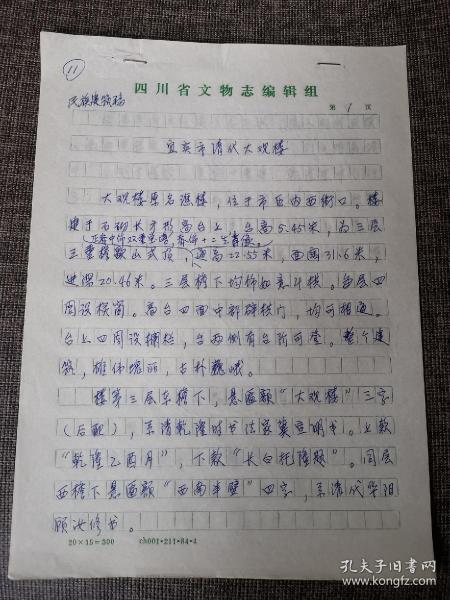 11
四川省文物志编辑组
第1页
宜宾市清代大观楼
大观楼原名谯楼，位于市区内西街口。楼
建于石砌长方形高台上，台高5.45米，为三层
三重檐歇山式顶，通高22.55米，面阔31.6米，
进深20.46米。三层檐下均饰如意斗拱。每层四
周设楼窗。高台四面中部辟拱门，均可相通。
台上四周设栏，台西侧有台阶可登。整个建
筑，雄伟瑰丽，古朴巍峨。
楼第三层东檐下，悬匾额“大观楼”三字
（后配），系清乾隆时书法家冀宣明书。上款
“乾隆乙酉月”，下款“长白托隆题”。同层
西檐下悬匾额“西南半壁”四字，系清代华阳
顾汝修书。
20×15=300 ch001·211·84·4
孔夫子旧书网
www.kongfz.com